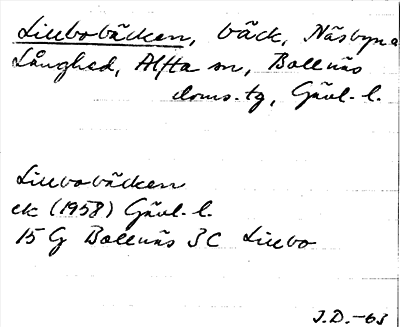 Liebobäcken, bäck, Näsbyn o
Långhed, Alfta sn, Bollnäs
doms.tg, Gävl. l.
Liebobäcken
ek (1958) Gävl. l.
15 G Bollnäs 3 C Liebo
I.D.-63